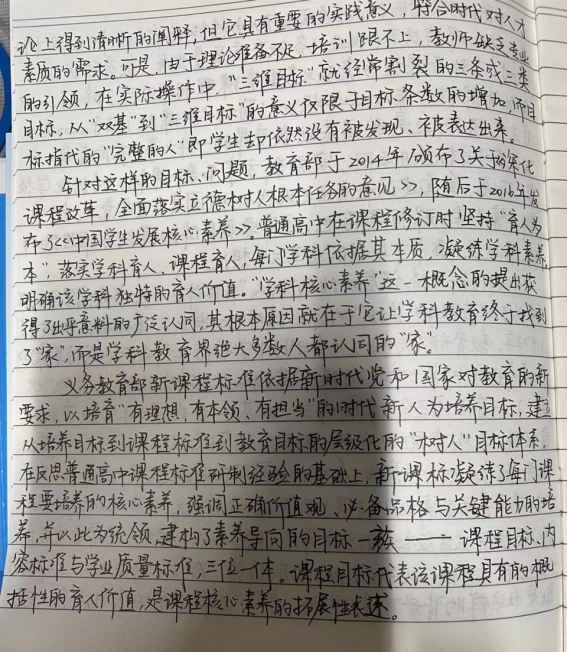 论上得到清晰的阐释,但它具有重要的实践意义,符合时代对人才
素质的需求。可是,由于理论准备不足,培训跟不上,教师缺乏专业
的引领,在实际操作中,"三维目标"就经常割裂的三条或三类
目标,从"双基"到"三维目标"的意义仅限于目标条数的增加,而目
标指代的"完整的人"即学生却依然没有被发现、被表达出来。
针对这样的目标、问题,教育部于2014年颁布了关于<<深化
课程改革,全面落实立德树人根本任务的意见>>,随后于2016年发
布了<<中国学生发展核心素养>>,普通高中在课程修订时坚持"育人为
本",落实学科育人、课程育人,每门学科依据其本质,凝练学科素养,
明确该学科独特的育人价值。"学科核心素养"这一概念的提出获
得了出乎意料的广泛认同,其根本原因就在于它让学科教育终于找到
了"家",而是学科教育界绝大多数人都认同的"家"。
义务教育部新课程标准依据新时代党和国家对教育的新
要求,以培育"有理想,有本领,有担当"的时代新人为培养目标,建立
从培养目标到课程标准到教育目标的层级化的"树人"目标体系。
在反思普通高中课程标准研制经验的基础上,新课标凝练了每门课
程要培养的核心素养,强调正确价值观、必备品格与关键能力的培
养,并以此为统领,建构了素养导向的目标一族——课程目标、内
容标准与学业质量标准,三位一体。课程目标代表该课程具有的概
括性的育人价值,是课程核心素养的拓展性表述。